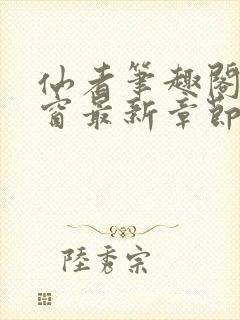 仙者筆趣閣
窗最新章節
陸秀宗